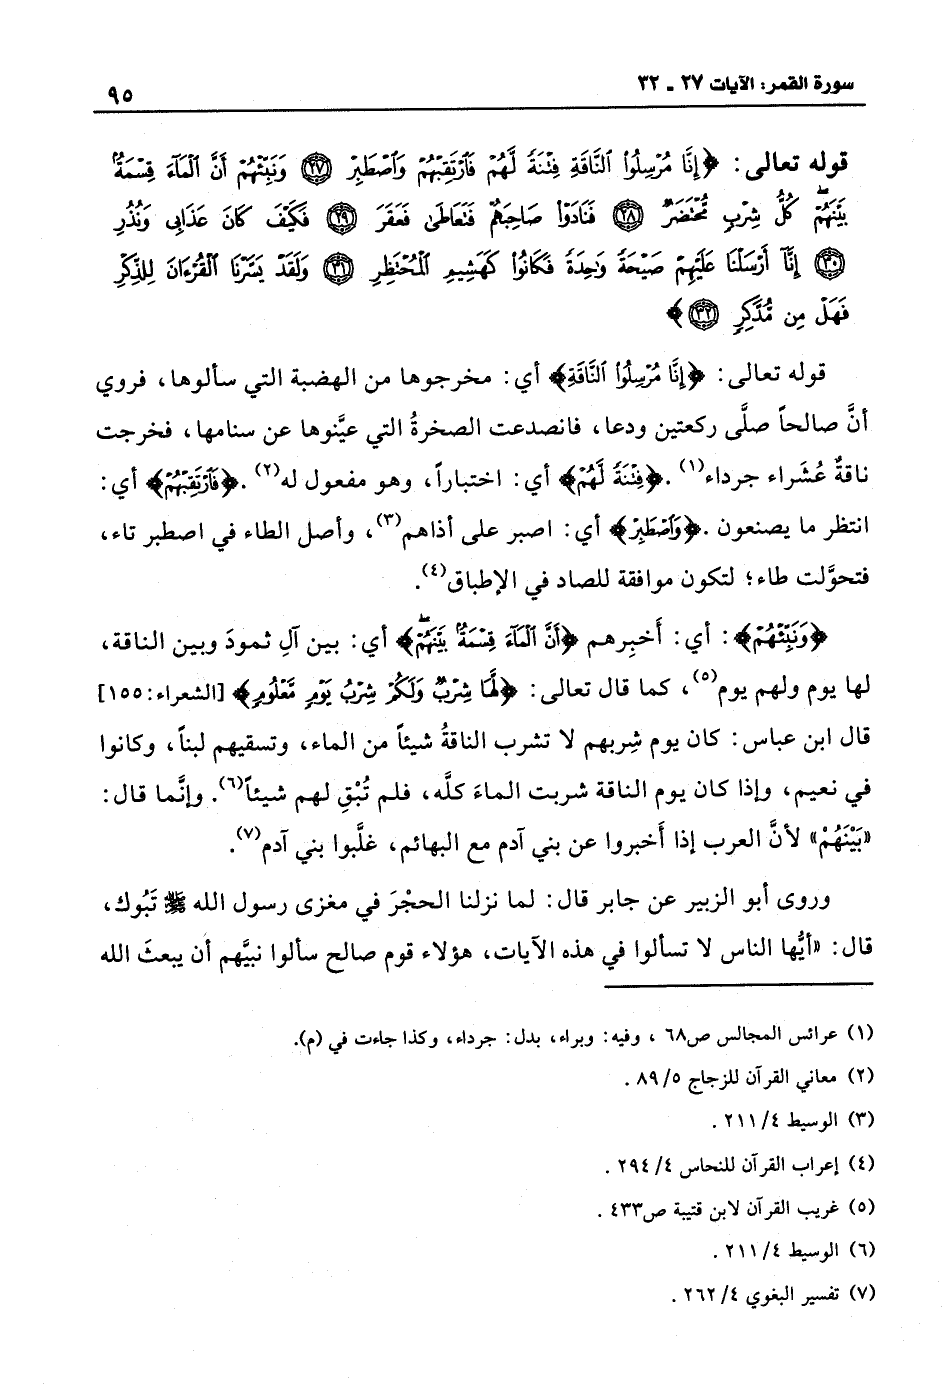 سورة القمر: الآيات ٢٧ ـ ٣٢
٩٥
قوله تعالى: ﴿إِنَّا مُرْسِلُوا۟ ٱلنَّاقَةِ فِتْنَةً لَّهُمْ فَٱرْتَقِبْهُمْ وَٱصْطَبِرْ ۝٢٧ وَنَبِّئْهُمْ أَنَّ ٱلْمَآءَ قِسْمَةٌۢ
بَيْنَهُمْ ۖ كُلُّ شِرْبٍ مُّحْتَضَرٌ ۝٢٨ فَنَادَوْا۟ صَاحِبَهُمْ فَتَعَاطَىٰ فَعَقَرَ ۝٢٩ فَكَيْفَ كَانَ عَذَابِى وَنُذُرِ
۝٣٠ إِنَّآ أَرْسَلْنَا عَلَيْهِمْ صَيْحَةً وَٰحِدَةً فَكَانُوا۟ كَهَشِيمِ ٱلْمُحْتَظِرِ ۝٣١ وَلَقَدْ يَسَّرْنَا ٱلْقُرْءَانَ لِلذِّكْرِ
فَهَلْ مِن مُّدَّكِرٍ ۝٣٢﴾
قوله تعالى: ﴿إِنَّا مُرْسِلُوا۟ ٱلنَّاقَةِ﴾ أي: مخرجوها من الهضبة التي سألوها، فروي
أنَّ صالحاً صلَّى ركعتين ودعا، فانصدعت الصخرةُ التي عيَّنوها عن سنامها، فخرجت
ناقةٌ عُشَراء جرداء(١). ﴿فِتْنَةً لَّهُمْ﴾ أي: اختباراً، وهو مفعول له(٢). ﴿فَٱرْتَقِبْهُمْ﴾ أي:
انتظر ما يصنعون. ﴿وَٱصْطَبِرْ﴾ أي: اصبر على أذاهم(٣)، وأصل الطاء في اصطبر تاء،
فتحوَّلت طاء؛ لتكون موافقة للصاد في الإطباق(٤).
﴿وَنَبِّئْهُمْ﴾: أي: أَخبِرهم ﴿أَنَّ ٱلْمَآءَ قِسْمَةٌۢ بَيْنَهُمْ ۖ﴾ أي: بين آلِ ثمودَ وبين الناقة،
لها يوم ولهم يوم(٥)، كما قال تعالى: ﴿لَّهَا شِرْبٌ وَلَكُمْ شِرْبُ يَوْمٍ مَّعْلُومٍ﴾ [الشعراء: ١٥٥]
قال ابن عباس: كان يوم شِربهم لا تشرب الناقةُ شيئاً من الماء، وتسقيهم لبناً، وكانوا
في نعيم، وإذا كان يوم الناقة شربت الماءَ كلَّه، فلم تُبْقِ لهم شيئاً(٦). وإنَّما قال:
«بَيْنَهُمْ» لأنَّ العرب إذا أَخبروا عن بني آدم مع البهائم، غلَّبوا بني آدم(٧).
وروى أبو الزبير عن جابر قال: لما نزلنا الحجْرَ في مغزى رسول الله ﷺ تَبُوك،
قال: «أيُّها الناس لا تسألوا في هذه الآيات، هؤلاء قوم صالح سألوا نبيَّهم أن يبعثَ الله
(١) عرائس المجالس ص٦٨ ، وفيه: وبراء، بدل: جرداء، وكذا جاءت في (م).
(٢) معاني القرآن للزجاج ٥/ ٨٩ .
(٣) الوسيط ٤/ ٢١١ .
(٤) إعراب القرآن للنحاس ٤/ ٢٩٤ .
(٥) غريب القرآن لابن قتيبة ص٤٣٣ .
(٦) الوسيط ٤/ ٢١١ .
(٧) تفسير البغوي ٤/ ٢٦٢ .